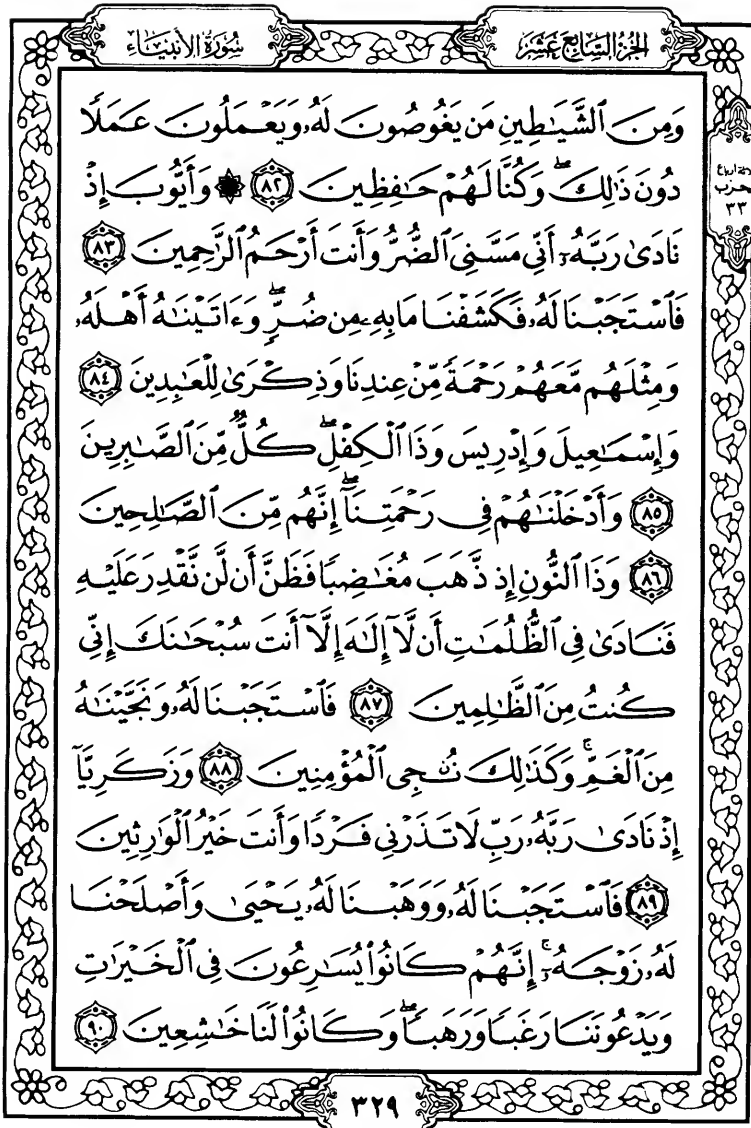 الجزء السابع عشر
سورة الأنبياء
وَمِنَ ٱلشَّيَٰطِينِ مَن يَغُوصُونَ لَهُۥ وَيَعْمَلُونَ عَمَلًا
دُونَ ذَٰلِكَ ۖ وَكُنَّا لَهُمْ حَٰفِظِينَ ٨٢ ۞ وَأَيُّوبَ إِذْ
ثلاثة أرباع
حزب
٣٣
نَادَىٰ رَبَّهُۥٓ أَنِّى مَسَّنِىَ ٱلضُّرُّ وَأَنتَ أَرْحَمُ ٱلرَّٰحِمِينَ ٨٣
فَٱسْتَجَبْنَا لَهُۥ فَكَشَفْنَا مَا بِهِۦ مِن ضُرٍّ ۖ وَءَاتَيْنَٰهُ أَهْلَهُۥ
وَمِثْلَهُم مَّعَهُمْ رَحْمَةً مِّنْ عِندِنَا وَذِكْرَىٰ لِلْعَٰبِدِينَ ٨٤
وَإِسْمَٰعِيلَ وَإِدْرِيسَ وَذَا ٱلْكِفْلِ ۖ كُلٌّ مِّنَ ٱلصَّٰبِرِينَ
٨٥ وَأَدْخَلْنَٰهُمْ فِى رَحْمَتِنَآ ۖ إِنَّهُم مِّنَ ٱلصَّٰلِحِينَ
٨٦ وَذَا ٱلنُّونِ إِذ ذَّهَبَ مُغَٰضِبًا فَظَنَّ أَن لَّن نَّقْدِرَ عَلَيْهِ
فَنَادَىٰ فِى ٱلظُّلُمَٰتِ أَن لَّآ إِلَٰهَ إِلَّآ أَنتَ سُبْحَٰنَكَ إِنِّى
كُنتُ مِنَ ٱلظَّٰلِمِينَ ٨٧ فَٱسْتَجَبْنَا لَهُۥ وَنَجَّيْنَٰهُ
مِنَ ٱلْغَمِّ ۚ وَكَذَٰلِكَ نُۨجِى ٱلْمُؤْمِنِينَ ٨٨ وَزَكَرِيَّآ
إِذْ نَادَىٰ رَبَّهُۥ رَبِّ لَا تَذَرْنِى فَرْدًا وَأَنتَ خَيْرُ ٱلْوَٰرِثِينَ
٨٩ فَٱسْتَجَبْنَا لَهُۥ وَوَهَبْنَا لَهُۥ يَحْيَىٰ وَأَصْلَحْنَا
لَهُۥ زَوْجَهُۥٓ ۚ إِنَّهُمْ كَانُوا۟ يُسَٰرِعُونَ فِى ٱلْخَيْرَٰتِ
وَيَدْعُونَنَا رَغَبًا وَرَهَبًا ۖ وَكَانُوا۟ لَنَا خَٰشِعِينَ ٩٠
٣٢٩